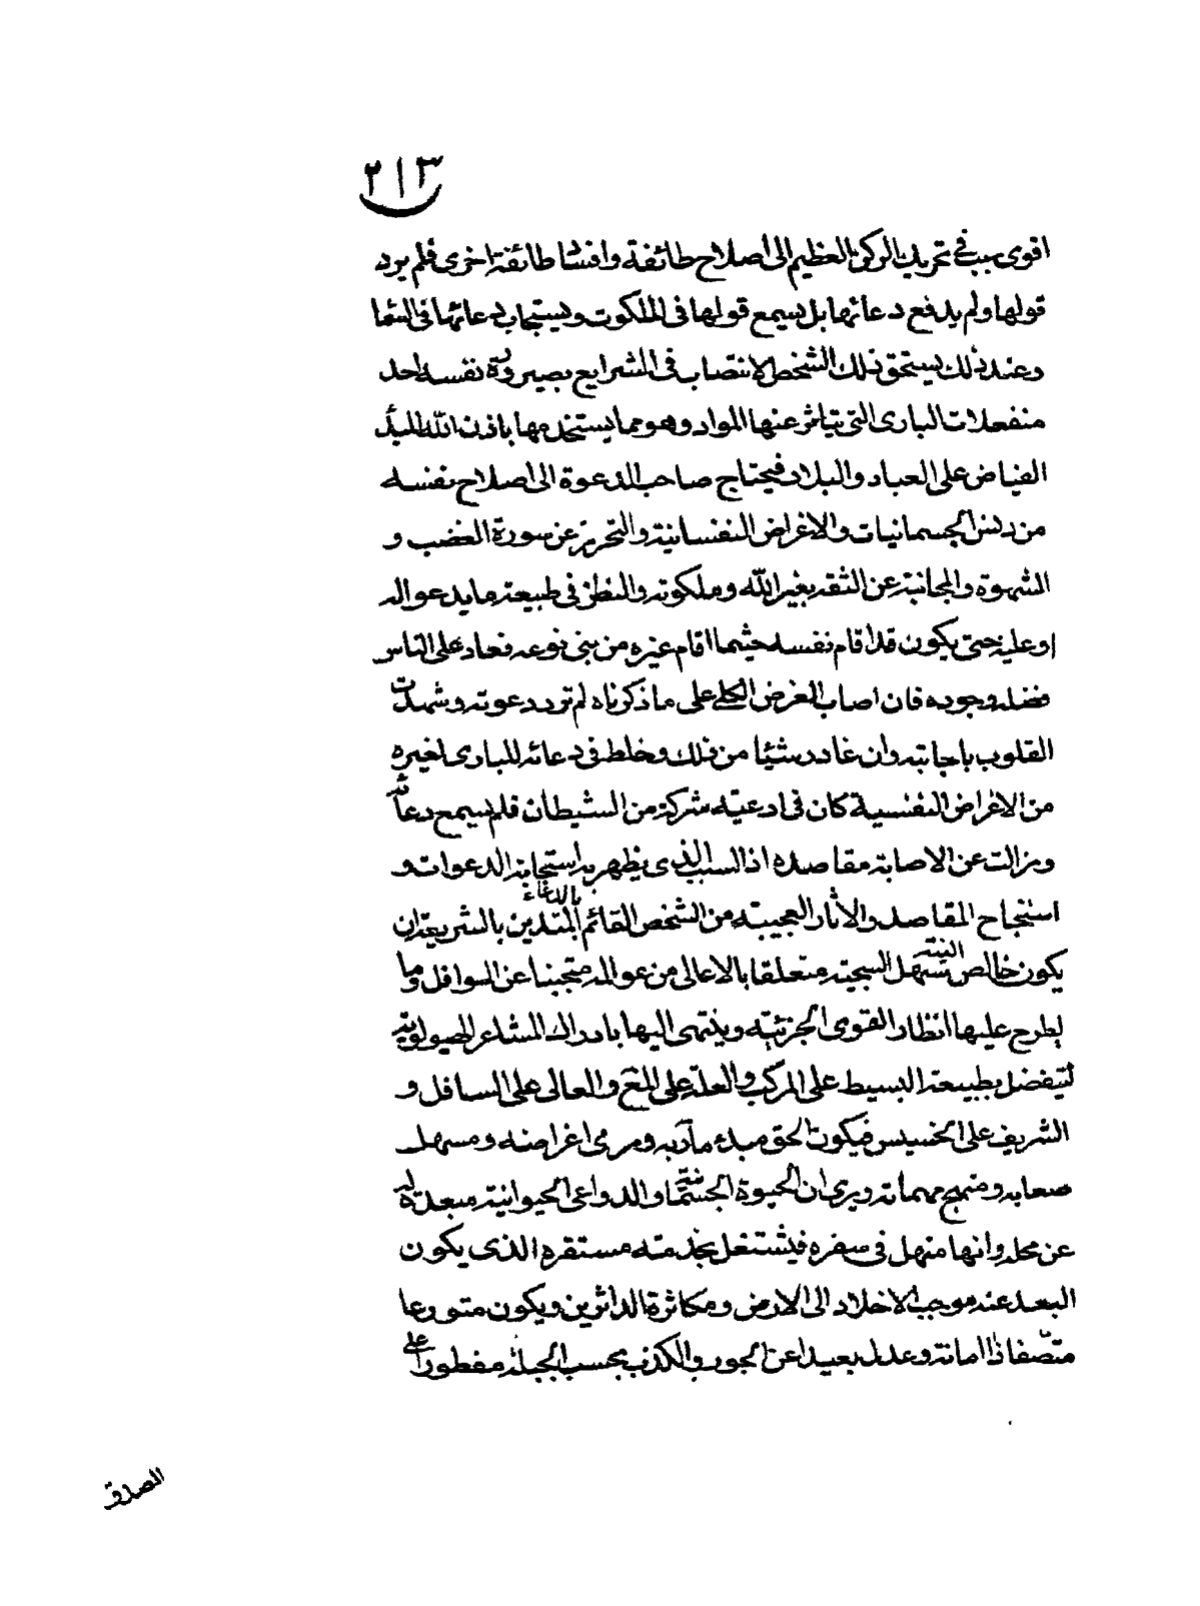 ٢١٣
اقوى سبب فى تحريك الركن العظيم الى اصلاح طائفة وافشا طائفة اخرى فلم يرد
قولها ولم يدفع دعائها بل يسمع قولها فى الملكوت ويستجاب دعائها فى السما
وعند ذلك يستحق ذلك الشخص الانتصاب فى الشرايع بصيرورة نفسه احد
منفعلات البارى التى يتاثر عنها المواد وهو مما يستخدمها باذن الله المبدأ
الفياض على العباد والبلاد فيحتاج صاحب الدعوة الى اصلاح نفسه
من دنس الجسمانيات والاغراض النفسانية والتحرز عن سورة الغضب و
الشهوة والمجانبة عن الثقة بغير الله وملكوته والنظر فى طبيعة ما يدعو اله
او عليه حتى يكون قد اقام نفسه حيثما اقام غيره من بنى نوعه فعاد على الناس
فضله وجوده فان اصاب الغرض الكلى على ما ذكرناه لم تردد دعوته وشهدت
القلوب باجابته وان غادر شيئا من ذلك وخلط فى دعائه للبارى لغيره
من الاغراض النفسية كان فى ادعيته شركة من الشيطان فلم يسمع دعائه
وزالت عن الاصابة مقاصده اذ السبب الذى يظهر به استجابة الدعوات و
استنجاح المقاصد والاثار العجيبة من الشخص القائم بالدعاء المتدين بالشريعة ان
يكون خالص النية سهل السجية متعلقا بالاعالى من عوالمه متجنبا عن السوافل وما
يطرح عليها انظار القوى الجزئية وينتهى اليها بادراك المشاعر الهيولوية
لتيفضل بطبيعة البسيط على المركب والعلة على المع والعالى على السافل و
الشريف على الخسيس فيكون الحق مبدء مآربه ومرمى اغراضه ومسهل
صعابه ومنهج مهماته ويرى ان الحيوة الجسمانية والدواعى الحيوانية مبعدة له
عن محله وانها منهل فى سفره فيشتغل بخدمة مستقره الذى يكون
البعد عنه موجب الاخلاد الى الارض ومكاثرة الداثرين ويكون متورعا
متصفا ذا امانة وعدل بعيدا عن الجور والكذب بحسب الجبلة مفطورا على
الصدق